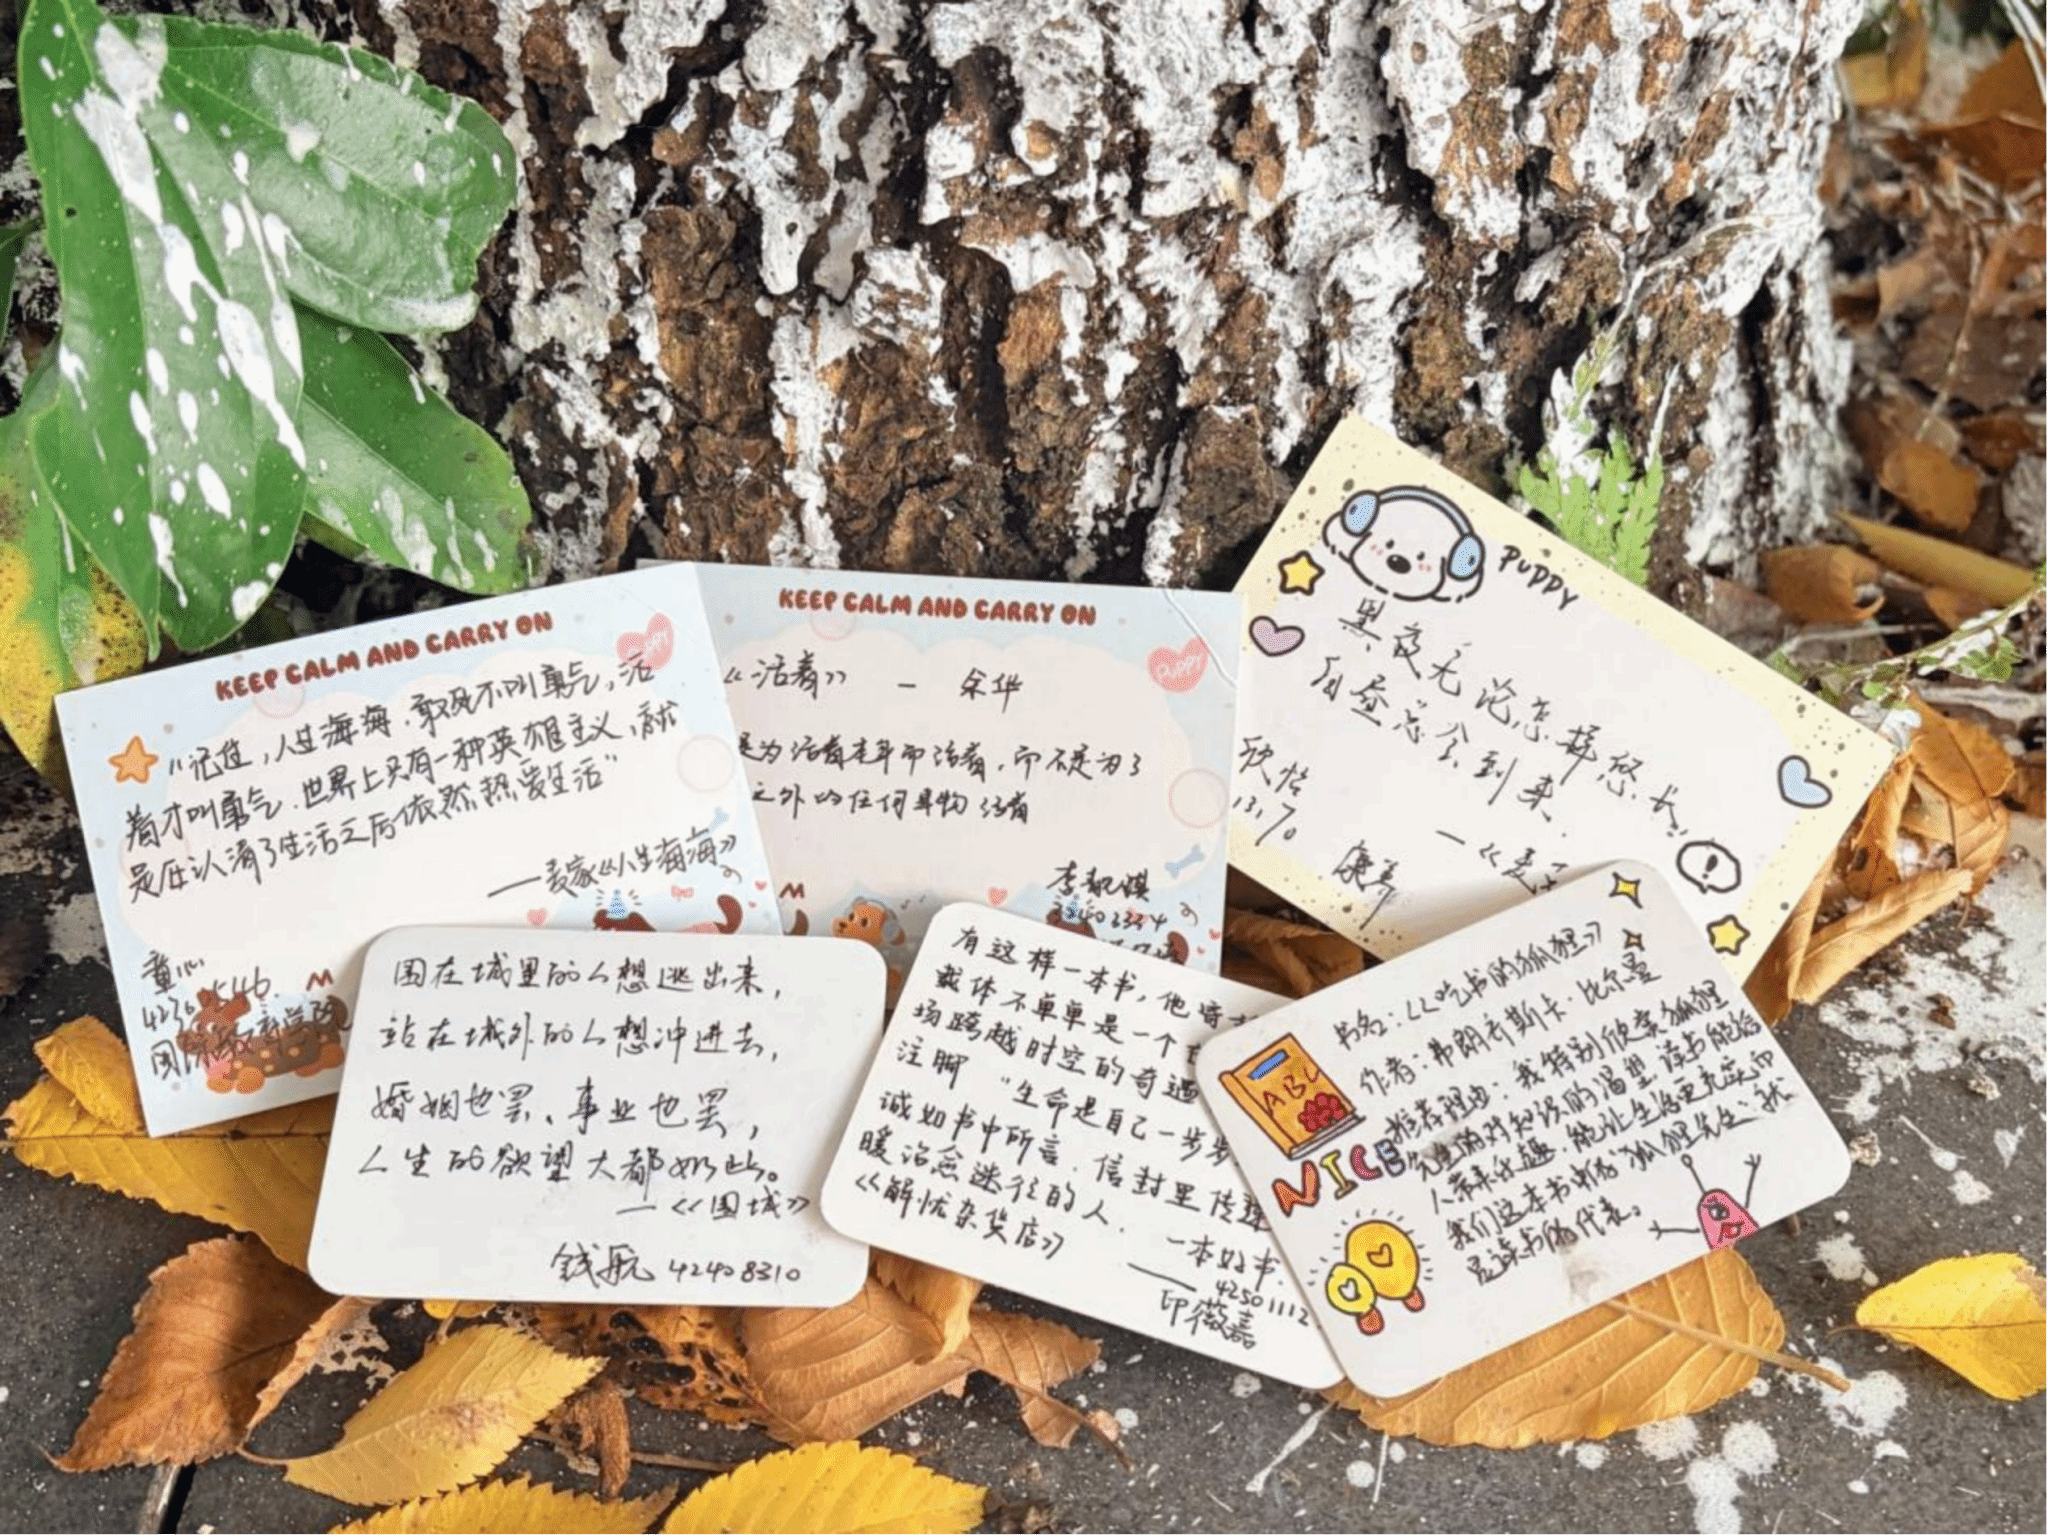 KEEP CALM AND CARRY ON
PUPPY
"记住，人生海海，敢死不叫勇气，活
着才叫勇气，世界上只有一种英雄主义，就
是在认清了生活之后依然热爱生活"
——麦家《人生海海》
童心
国际教育学院
KEEP CALM AND CARRY ON
PUPPY
《活着》 — 余华
是为活着本身而活着，而不是为了
之外的任何事物活着
李
PUPPY
黑夜无论怎样悠长
白昼总会到来.
—《麦
康养
围在城里的人想逃出来，
站在城外的人想冲进去，
婚姻也罢、事业也罢，
人生的欲望大都如此。
—《围城》
钱航 42408310
有这样一本书，他
载体不单单是一个
场跨越时空的奇遇
注脚 "生命是自己一步步
诚如书中所言，信封里传
暖治愈迷径的人.
《解忧杂货店》
一本好书.
—— 42501112
印薇嘉
书名：《吃书的狐狸》
作者：弗朗齐斯卡·比尔曼
推荐理由：我特别欣赏狐狸
先生的对知识的渴望，读书能给
人带来乐趣，能让生活更充实而
我们这本书中的"狐狸先生"就
是读书的代表。
ABC
NICE